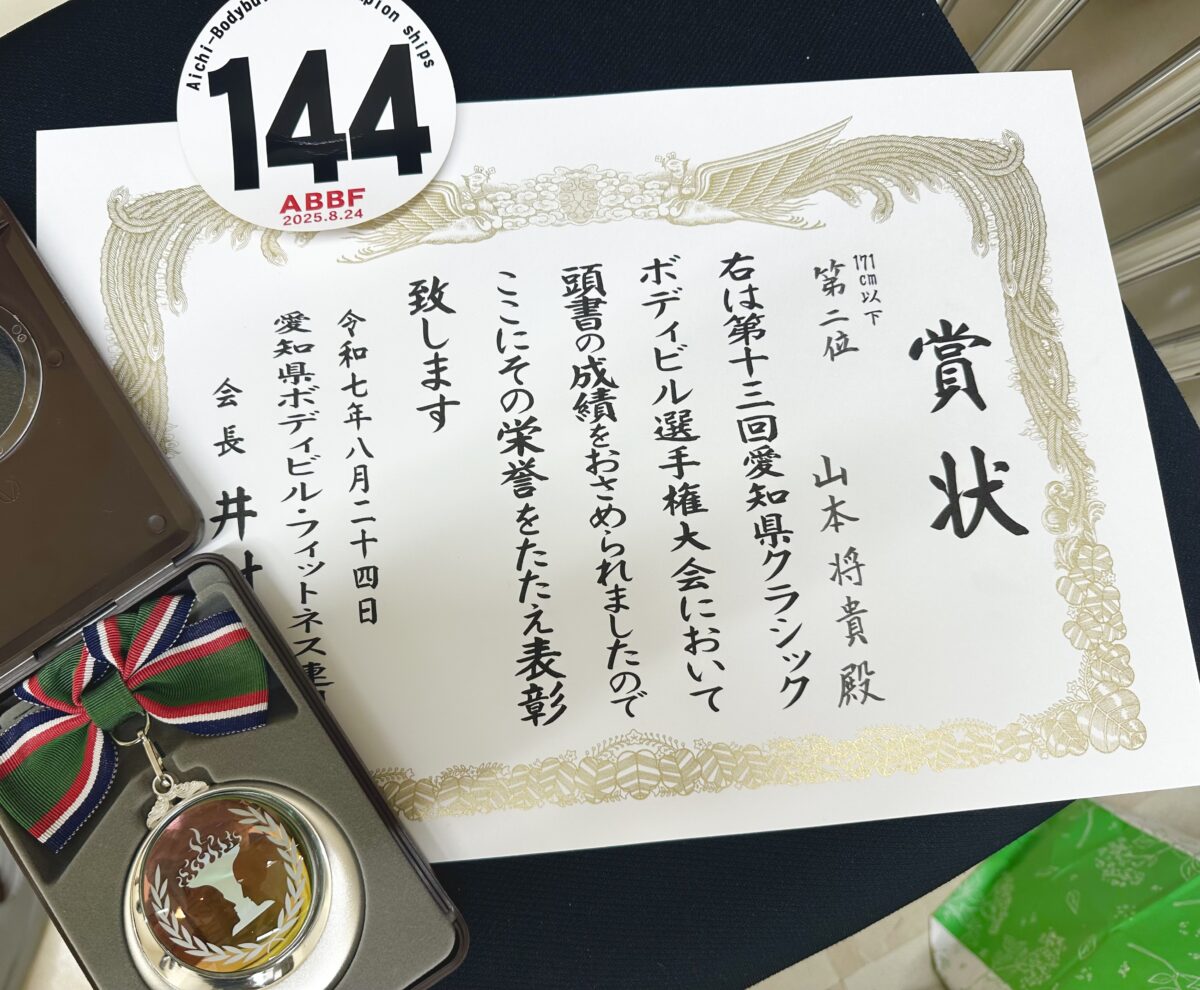 144
ABBF
2025.8.24
賞状
171cm以下
第二位
山本将貴殿
右は第十三回愛知県クラシック
ボディビル選手権大会において
頭書の成績をおさめられましたので
ここにその栄誉をたたえ表彰
致します
令和七年八月二十四日
愛知県ボディビル・フィットネス連
会長 井